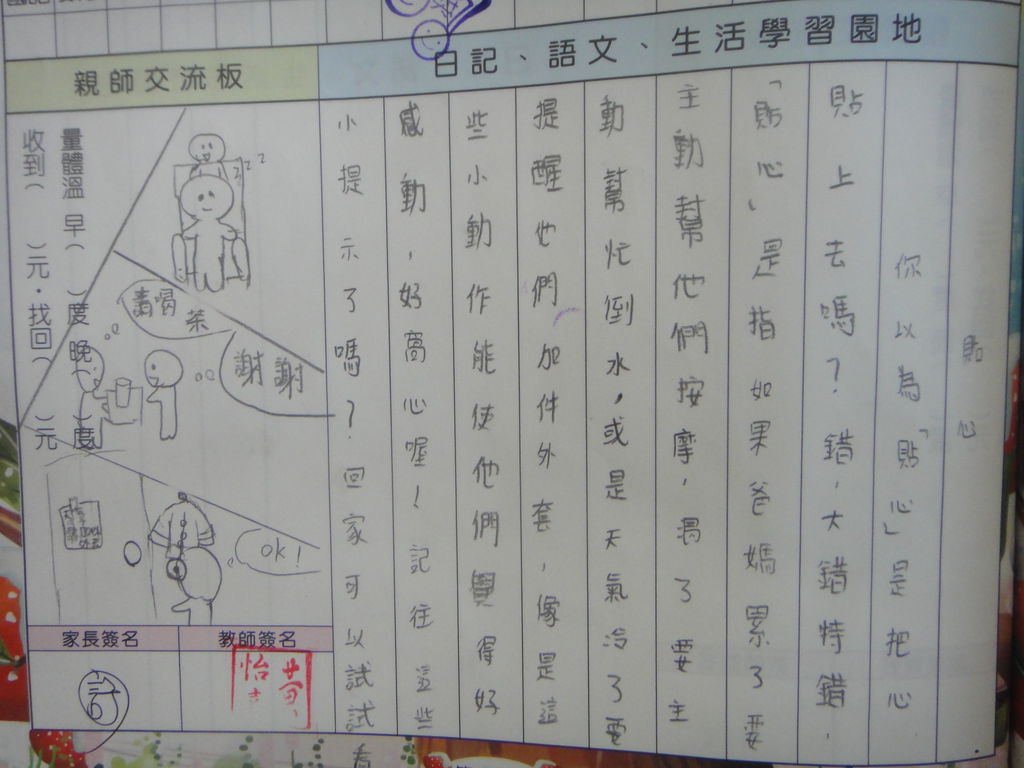 日記、語文、生活學習園地
貼心
你以為「貼心」是把心
貼上去嗎？錯，大錯特錯，
「貼心」是指如果爸媽累了要
主動幫他們按摩，渴了要主
動幫忙倒水，或是天氣冷了要
提醒他們加件外套，像是這
些小動作能使他們覺得好
感動，好窩心喔！記住這些
小提示了嗎？回家可以試試看
親師交流板
量體溫 早( )度 晚( )度
收到( )元·找回( )元
請喝茶
謝謝
OK!
家長簽名
教師簽名